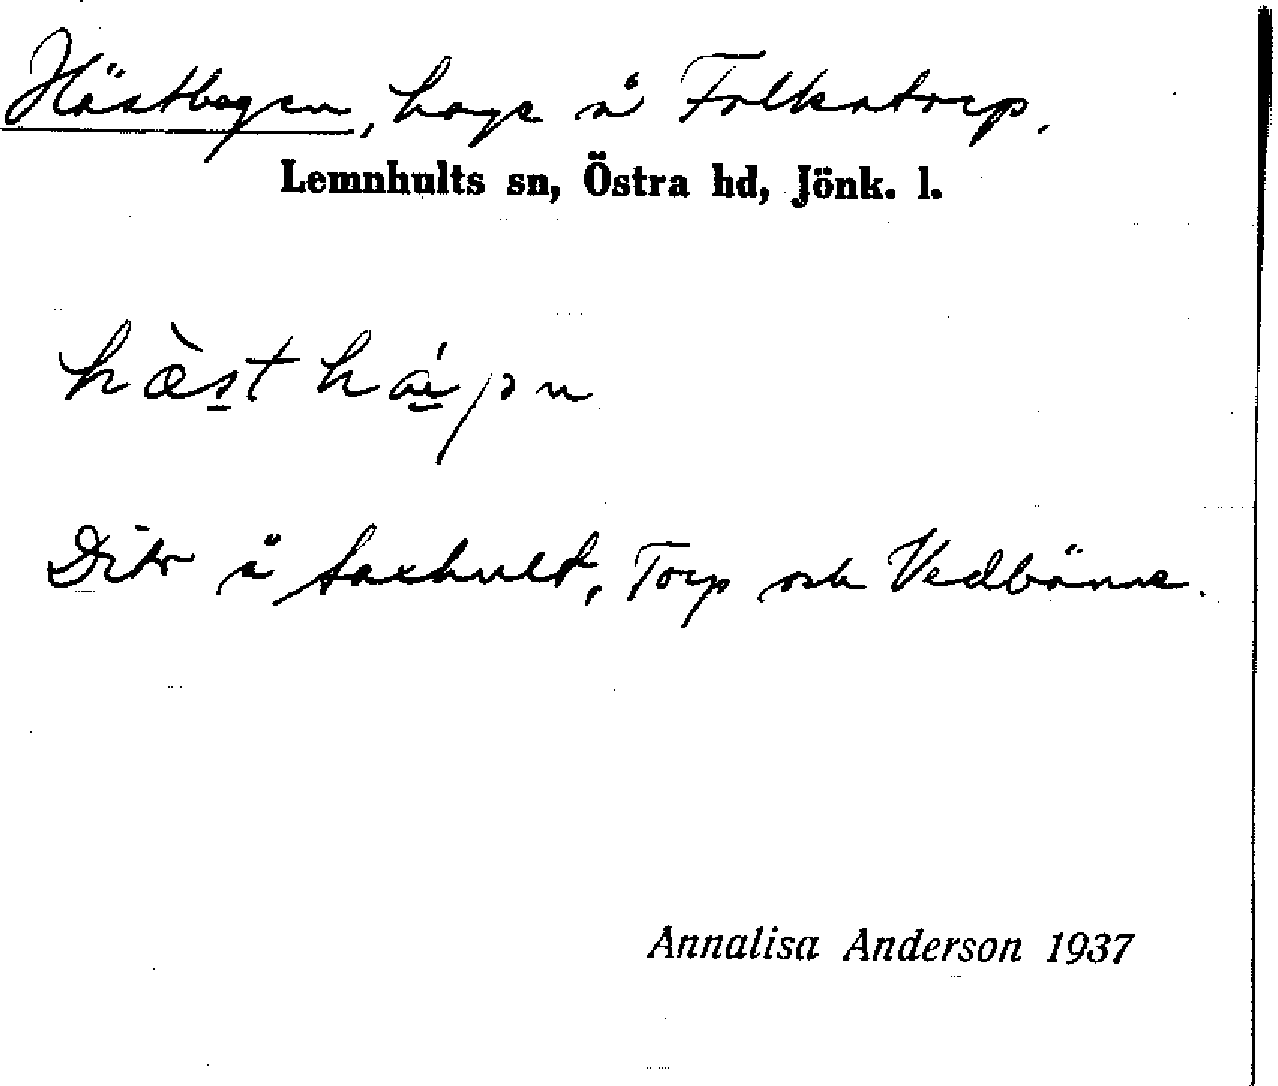 Hästhagen, hage å Folkatorp.
Lemnhults sn, Östra hd, Jönk. l.
hàst
Dito å Saxhult, Torp och Vedbänne.
Annalisa Anderson 1937